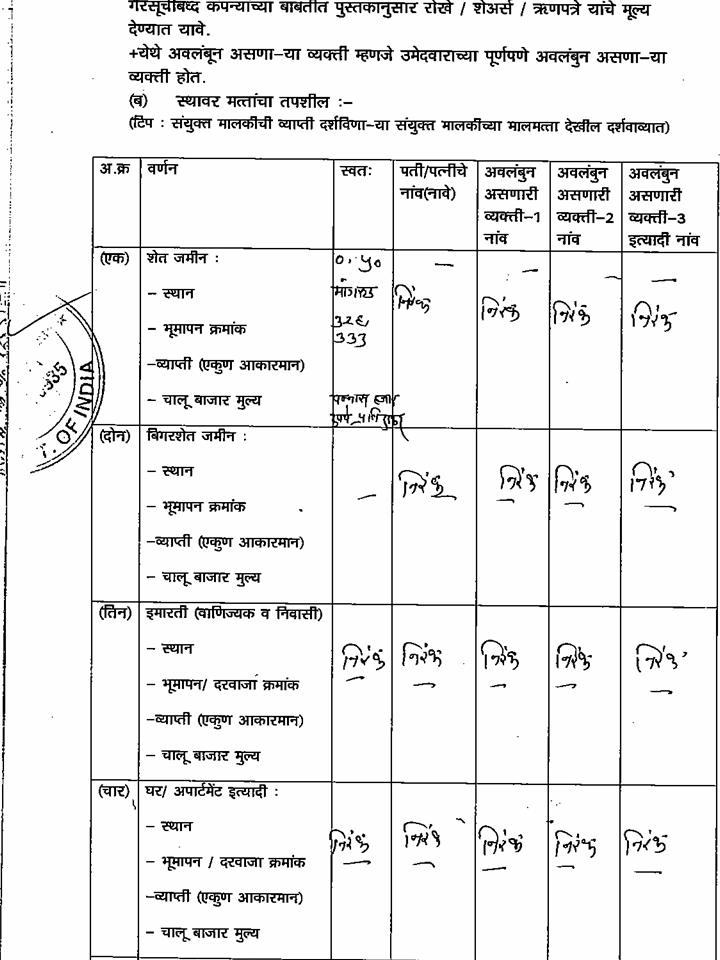 गैरसूचीबध्द कंपन्यांच्या बाबतीत पुस्तकानुसार रोखे / शेअर्स / ऋणपत्रे यांचे मूल्य
देण्यात यावे.
+येथे अवलंबून असणा–या व्यक्ती म्हणजे उमेदवाराच्या पूर्णपणे अवलंबुन असणा–या
व्यक्ती होत.
(ब) स्थावर मत्तांचा तपशील :–
(टिप : संयुक्त मालकीची व्याप्ती दर्शविणा–या संयुक्त मालकीच्या मालमत्ता देखील दर्शवाव्यात)
अ.क्र वर्णन स्वतः पती/पत्नीचे नांव(नावे) अवलंबुन असणारी व्यक्ती–1 नांव अवलंबुन असणारी व्यक्ती–2 नांव अवलंबुन असणारी व्यक्ती–3 इत्यादी नांव
(एक) शेत जमीन : ०.५० — — — —
– स्थान निरंक निरंक निरंक निरंक
– भूमापन क्रमांक 333
–व्याप्ती (एकुण आकारमान)
– चालू बाजार मुल्य पन्नास हजार
(दोन) बिगरशेत जमीन :
– स्थान — निरंक निरंक निरंक निरंक
– भूमापन क्रमांक
–व्याप्ती (एकुण आकारमान)
– चालू बाजार मुल्य
(तिन) इमारती (वाणिज्यक व निवासी)
– स्थान निरंक निरंक निरंक निरंक निरंक
– भूमापन/ दरवाजा क्रमांक
–व्याप्ती (एकुण आकारमान)
– चालू बाजार मुल्य
(चार) घर/ अपार्टमेंट इत्यादी :
– स्थान निरंक निरंक निरंक निरंक निरंक
– भूमापन / दरवाजा क्रमांक
–व्याप्ती (एकुण आकारमान)
– चालू बाजार मुल्य
T. OF INDIA